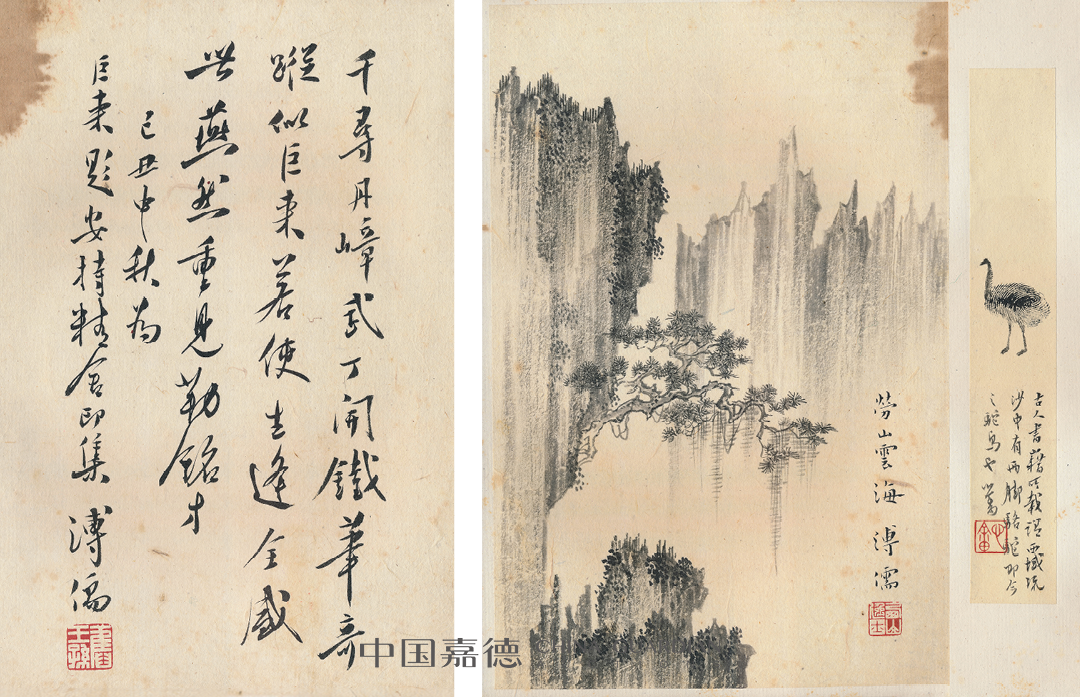 千尋丹嶂武丁開鐵筆奇
蹤似巨來若使生逢全盛
世燕然重見勒銘才
己丑中秋為
巨來題安持精舍印集 溥儒
舊王孫
勞山雲海 溥儒
古人書籍所載謂西域流
沙中有兩腳駱駝即今
之鴕鳥也 心畬
心畬
中国嘉德